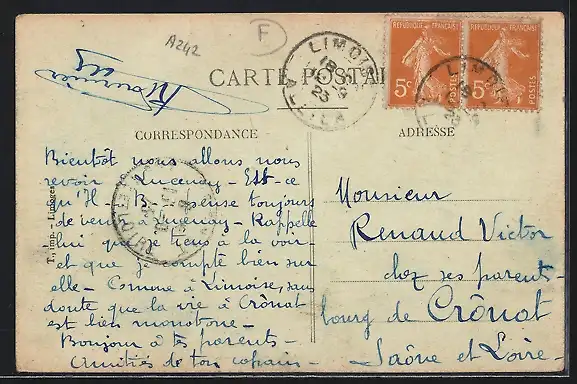 A242
F
RÉPUBLIQUE FRANÇAISE
5c POSTES
RÉPUBLIQUE FRANÇAISE
5c POSTES
LIMOISE
LIMOISE
CARTE POSTALE
CORRESPONDANCE
ADRESSE
T., imp. - Limoges
Bientôt nous allons nous
revoir Lucenay - Est-ce
qu'H - B - pense toujours
de venir à Lucenay - Rappelle
lui que je tiens à la voir -
et que je compte bien sur
elle - Comme à Limoise, sans
doute que la vie à Crônat
est bien monotone -
Bonjour à tes parents -
Amitiés de ton copain -
Monsieur
Renaud Victor
chez ses parents -
bourg de Crônat
Saône et Loire -